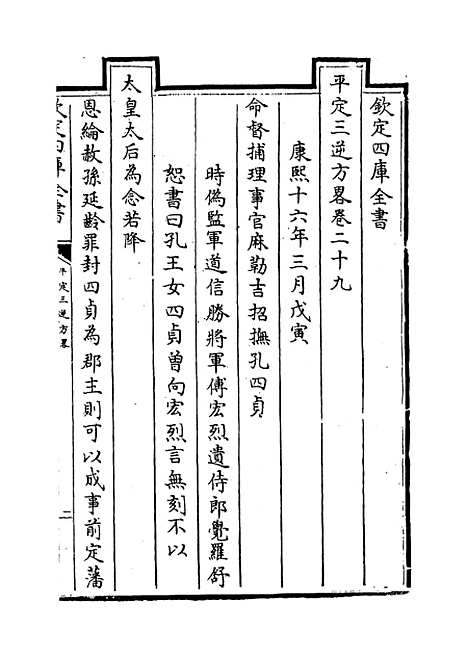 欽定四庫全書
平定三逆方畧卷二十九
康熙十六年三月戊寅
命督捕理事官麻勒吉招撫孔四貞
時偽監軍道信勝將軍傅宏烈遺侍郎覺羅舒
恕書曰孔王女四貞曾向宏烈言無刻不以
太皇太后為念若降
恩綸赦孫延齡罪封四貞為郡主則可以成事前定藩
欽定四庫全書
平定三逆方畧
二